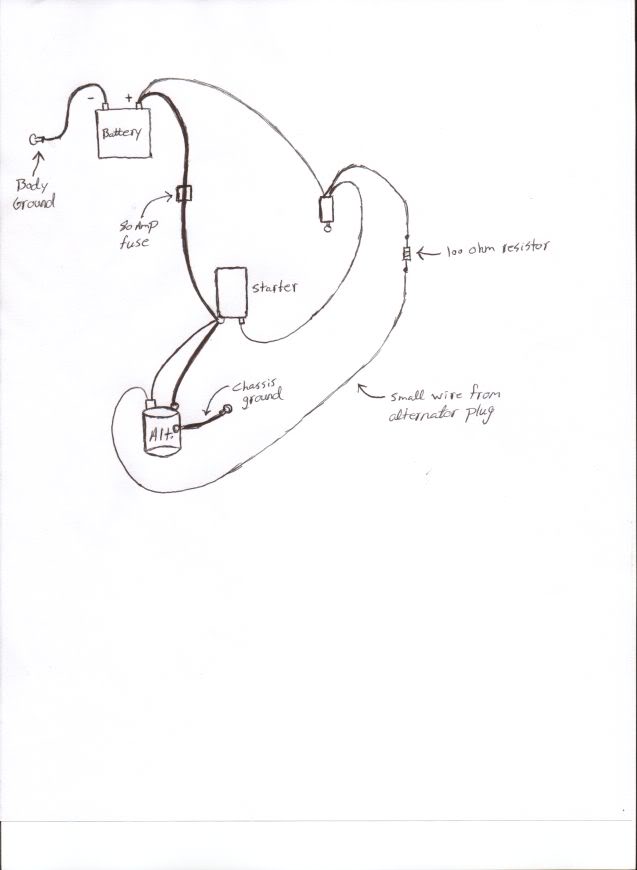 - +
Battery
Body
Ground
80 Amp
fuse
Starter
100 ohm resistor
chassis
ground
Small wire from
alternator plug
Alt.